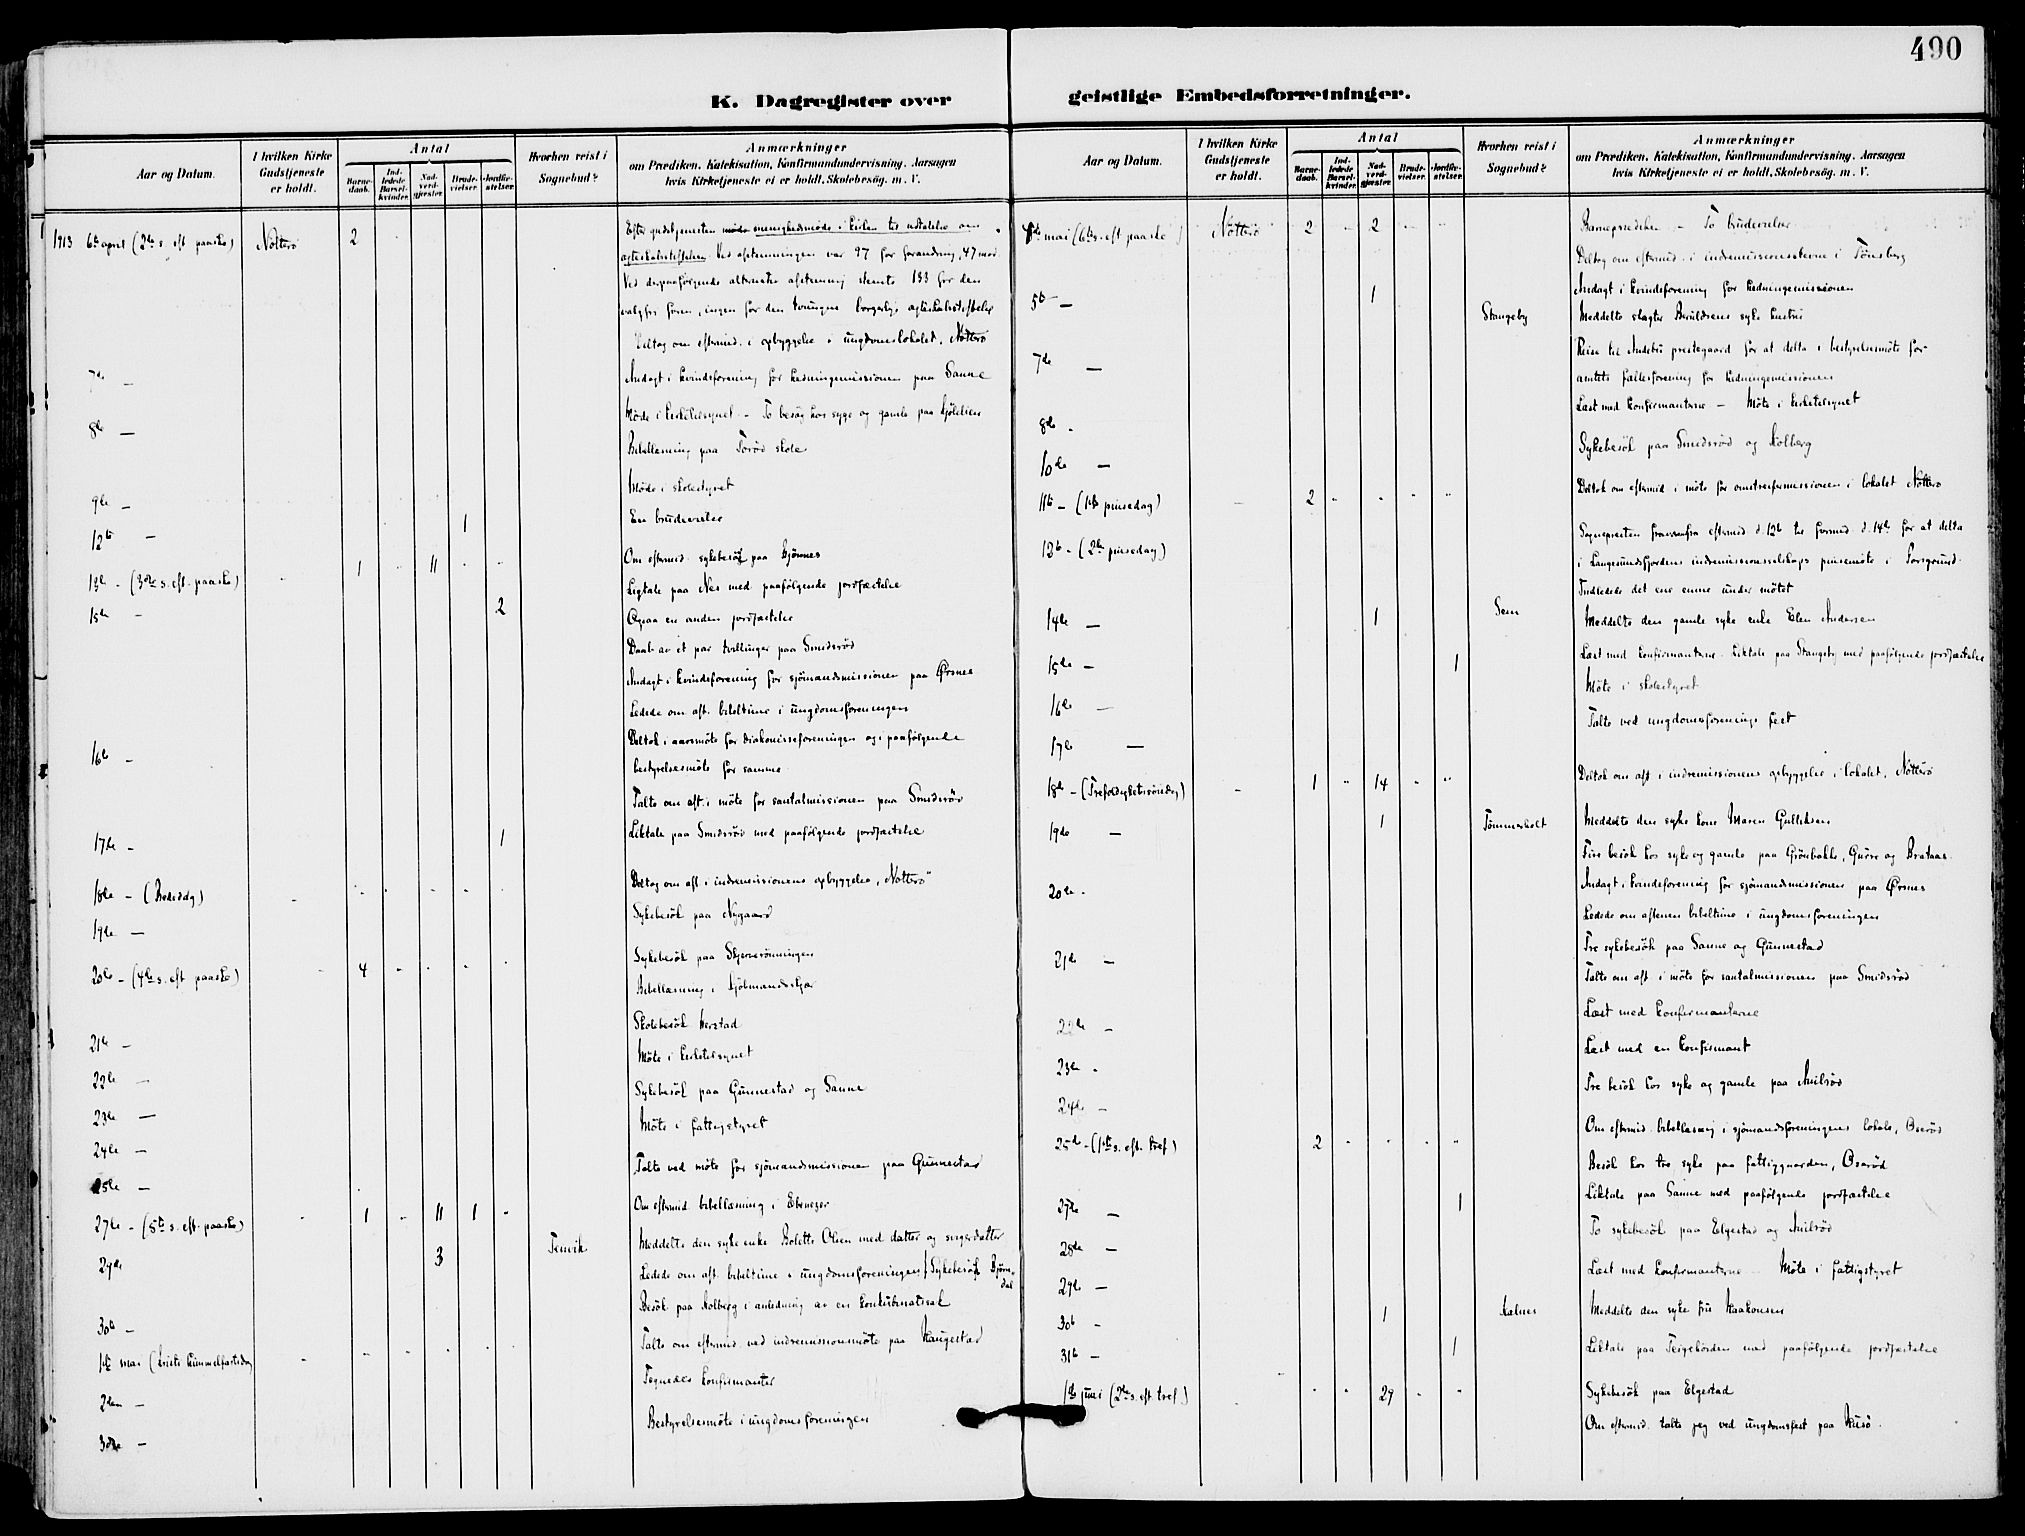 490
K. Dagregister over
geistlige Embedsforretninger.
Aar og Datum.
I hvilken Kirke Gudstjeneste er holdt.
Antal
Barne-daab.
Ind-ledede Barsel-kvinder.
Nad-verd-gjester.
Brude-vielser.
Jordfæ-stelser.
Hvorhen reist i Sognebud?
Anmærkninger
om Prædiken, Katekisation, Konfirmandundervisning, Aarsagen
hvis Kirketjeneste ei er holdt, Skolebesøg. m. V.
1913 6te april (2den s. eft. paaske) Nøtterø 2 Efter gudstjenesten møde menighedsmøde i kirken til udtalelse om
egteskabsstiftelsen. Ved afstemningen var 97 for forandring, 47 mod
Ved derpaafølgende alternativ afstemning stemte 133 for den
valgfri form, ingen for den tvungne borgerlige egteskabsstiftelse
Deltog om eftermid. i opbyggelse i ungdomslokalet, Nøtterø
7de — Andagt i kvindeforening for hedningemissionen paa Sanne
8de — Møde i kirketilsynet – To besøg hos syge og gamle paa
Bibellæsning paa Torød skole
9de — Møde i skolestyret
12te — 1 En brudevielse
13de – (3die s. eft. paaske) 1 11 Om eftermid. sykebesøk paa Hjønnes
15de — 2 Ligtale paa Nes med paafølgende jordfæstelse
Ogsaa en anden jordfæstelse
Daab av et par tvillinger paa Smidsrød
Andagt i kvindeforening for sjømandsmissionen paa Ørsnes
Ledede om aft. bibeltime i ungdomsforeningen
16de — Deltok i aarsmøte for diakonisseforeningen og i paafølgende
bestyrelsesmøte for samme
Talte om aft. i møte for santalmissionen paa Smidsrød
17de — 1 Liktale paa Smidsrød med paafølgende jordfæstelse
18de – (Bededag) Deltog om aft. i indremissionens opbyggelse, Nøtterø
19de — Sykebesøk paa Nygaard
20de – (4de s. eft paaske) 4 Sykebesøk paa Skjerverønningen
Bibellæsning i Kjøbmandskjær
21de — Skolebesøk Herstad
22de — Møte i kirketilsynet
23de — Sykebesøk paa Gunnestad og Sanne
24de — Møte i fattigstyret
25de — Talte ved møte for sjømandsmissionen paa Gunnestad
27de – (5te s. eft. paaske) 1 11 1 Om eftermid. bibellæsning i Ebenezer
29de 3 Tenvik Meddelte den syke enke Bolette Olsen med datter og svigerdatter
Ledede om aft. bibeltime i ungdomsforeningen / Sykebesøk Bjørne-dal
30te — Besøk paa Kolberg i anledning av en konkubinatssak
1ste mai (Kristi himmelfartsdag) Talte om eftermid. ved indremissionsmøte paa Haugestad
2den — Tegnedes konfirmanter
3die — Bestyrelsesmøte i ungdomsforeningen
Aar og Datum.
I hvilken Kirke Gudstjeneste er holdt.
Antal
Barne-daab.
Ind-ledede Barsel-kvinder.
Nad-verd-gjester.
Brude-vielser.
Jordfæ-stelser.
Hvorhen reist i Sognebud?
Anmærkninger
om Prædiken, Katekisation, Konfirmandundervisning, Aarsagen
hvis Kirketjeneste ei er holdt, Skolebesøg. m. V.
mai (6te s. eft paaske) Nøtterø 2 2 Barneprædiken – To brudevielser
Deltog om eftermid. i indremissionsstevne i Tønsberg
Andagt i kvindeforening for hedningemissionen
5te — 1 Stangeby Meddelte slagter syke hustru
7de — Reise til Andebu prestegaard for at delta i bestyrelsesmøte for
amtets fællesforening for hedningemissionen
8de - Læst med konfirmanterne – Møte i kirketilsynet
10de — Sykebesøk paa Smidsrød og Kolberg
11te – (1ste pinsedag) 2 Deltok om eftermid. i møte for i lokalet Nøtterø
(2den pinsedag) Sognepresten fraværende fra eftermid. d. 12te til formid. d. 14de for at delta
i Langesundsfjordens indremissionsselskaps pinsemøte i Porsgrund.
Indledede det ene emne under møtet
14de — 1 Sem Meddelte den gamle syke enke Elen Andersen
15de — 1 Læst med konfirmanterne. Liktale paa Stangeby med paafølgende jordfæstelse
16de — Møte i skolestyret
17de — Talte ved ungdomsforenings fest
18de – (Trefoldighetssøndag) 1 14 Deltok om aft. i indremissionens opbyggelse i lokalet, Nøtterø
19de — 1 Tømmerholt Meddelte den syke kone Maren Gulliksen
Fire besøk hos syke og gamle paa Grønbakke, og Brataas.
20de - Andagt i kvindeforening for sjømandsmissionen paa Ørsnes
Ledede om aftenen bibeltime i ungdomsforeningen
21de — Tre sykebesøk paa Sanne og Gunnestad
Talte om aft. i møte for santalmissionen paa Smidsrød
22de — Læst med konfirmanterne
23de - Læst med en konfirmant
24de — Tre besøk hos syke og gamle paa
25de – (1ste s. eft. tref.) 2 Om eftermid. bibellæsning i sjømandsforeningens lokale, Oserød
Besøk hos tre syke paa fattiggaarden, Oserød
27de — 1 Liktale paa Sanne med paafølgende jordfæstelse
28de — To sykebesøk paa Elgestad og
29de — Læst med konfirmanterne – Møte i fattigstyret
30te - 1 Kalnes Meddelte den syke fru Haakonsen
31te — 1 Liktale paa med paafølgende jordfæstelse
1ste juni (2den s. eft tref.) 29 Sykebesøk paa Elgestad
Om eftermid. talte jeg ved ungdomsfest paa Husø.